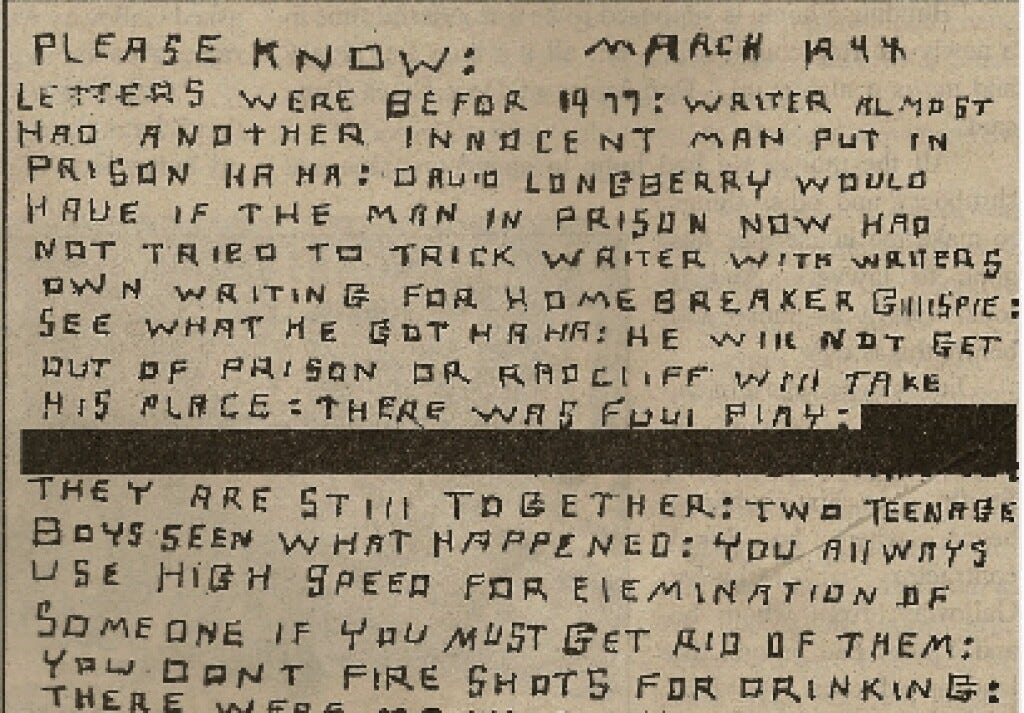 PLEASE KNOW: MARCH
LETTERS WERE BEFOR 1977: WRITER ALMOST
HAD ANOTHER INNOCENT MAN PUT IN
PRISON HA HA: DAVID LONGBERRY WOULD
HAVE IF THE MAN IN PRISON NOW HAD
NOT TRIED TO TRICK WRITER WITH WRITERS
OWN WRITING FOR HOMEBREAKER GIllISPIE:
SEE WHAT HE GOT HA HA: HE WIll NOT GET
OUT OF PRISON OR RADCLIFF WIll TAKE
HIS PLACE: THERE WAS FOUl PlAY:
THEY ARE STIll TOGETHER: TWO TEENAGE
BOYS SEEN WHAT HAPPENED: YOU AllWAYS
USE HIGH SPEED FOR ElEMINATION OF
SOMEONE IF YOU MUST GET RID OF THEM:
YOU DONT FIRE SHOTS FOR DRINKING:
THERE WERE